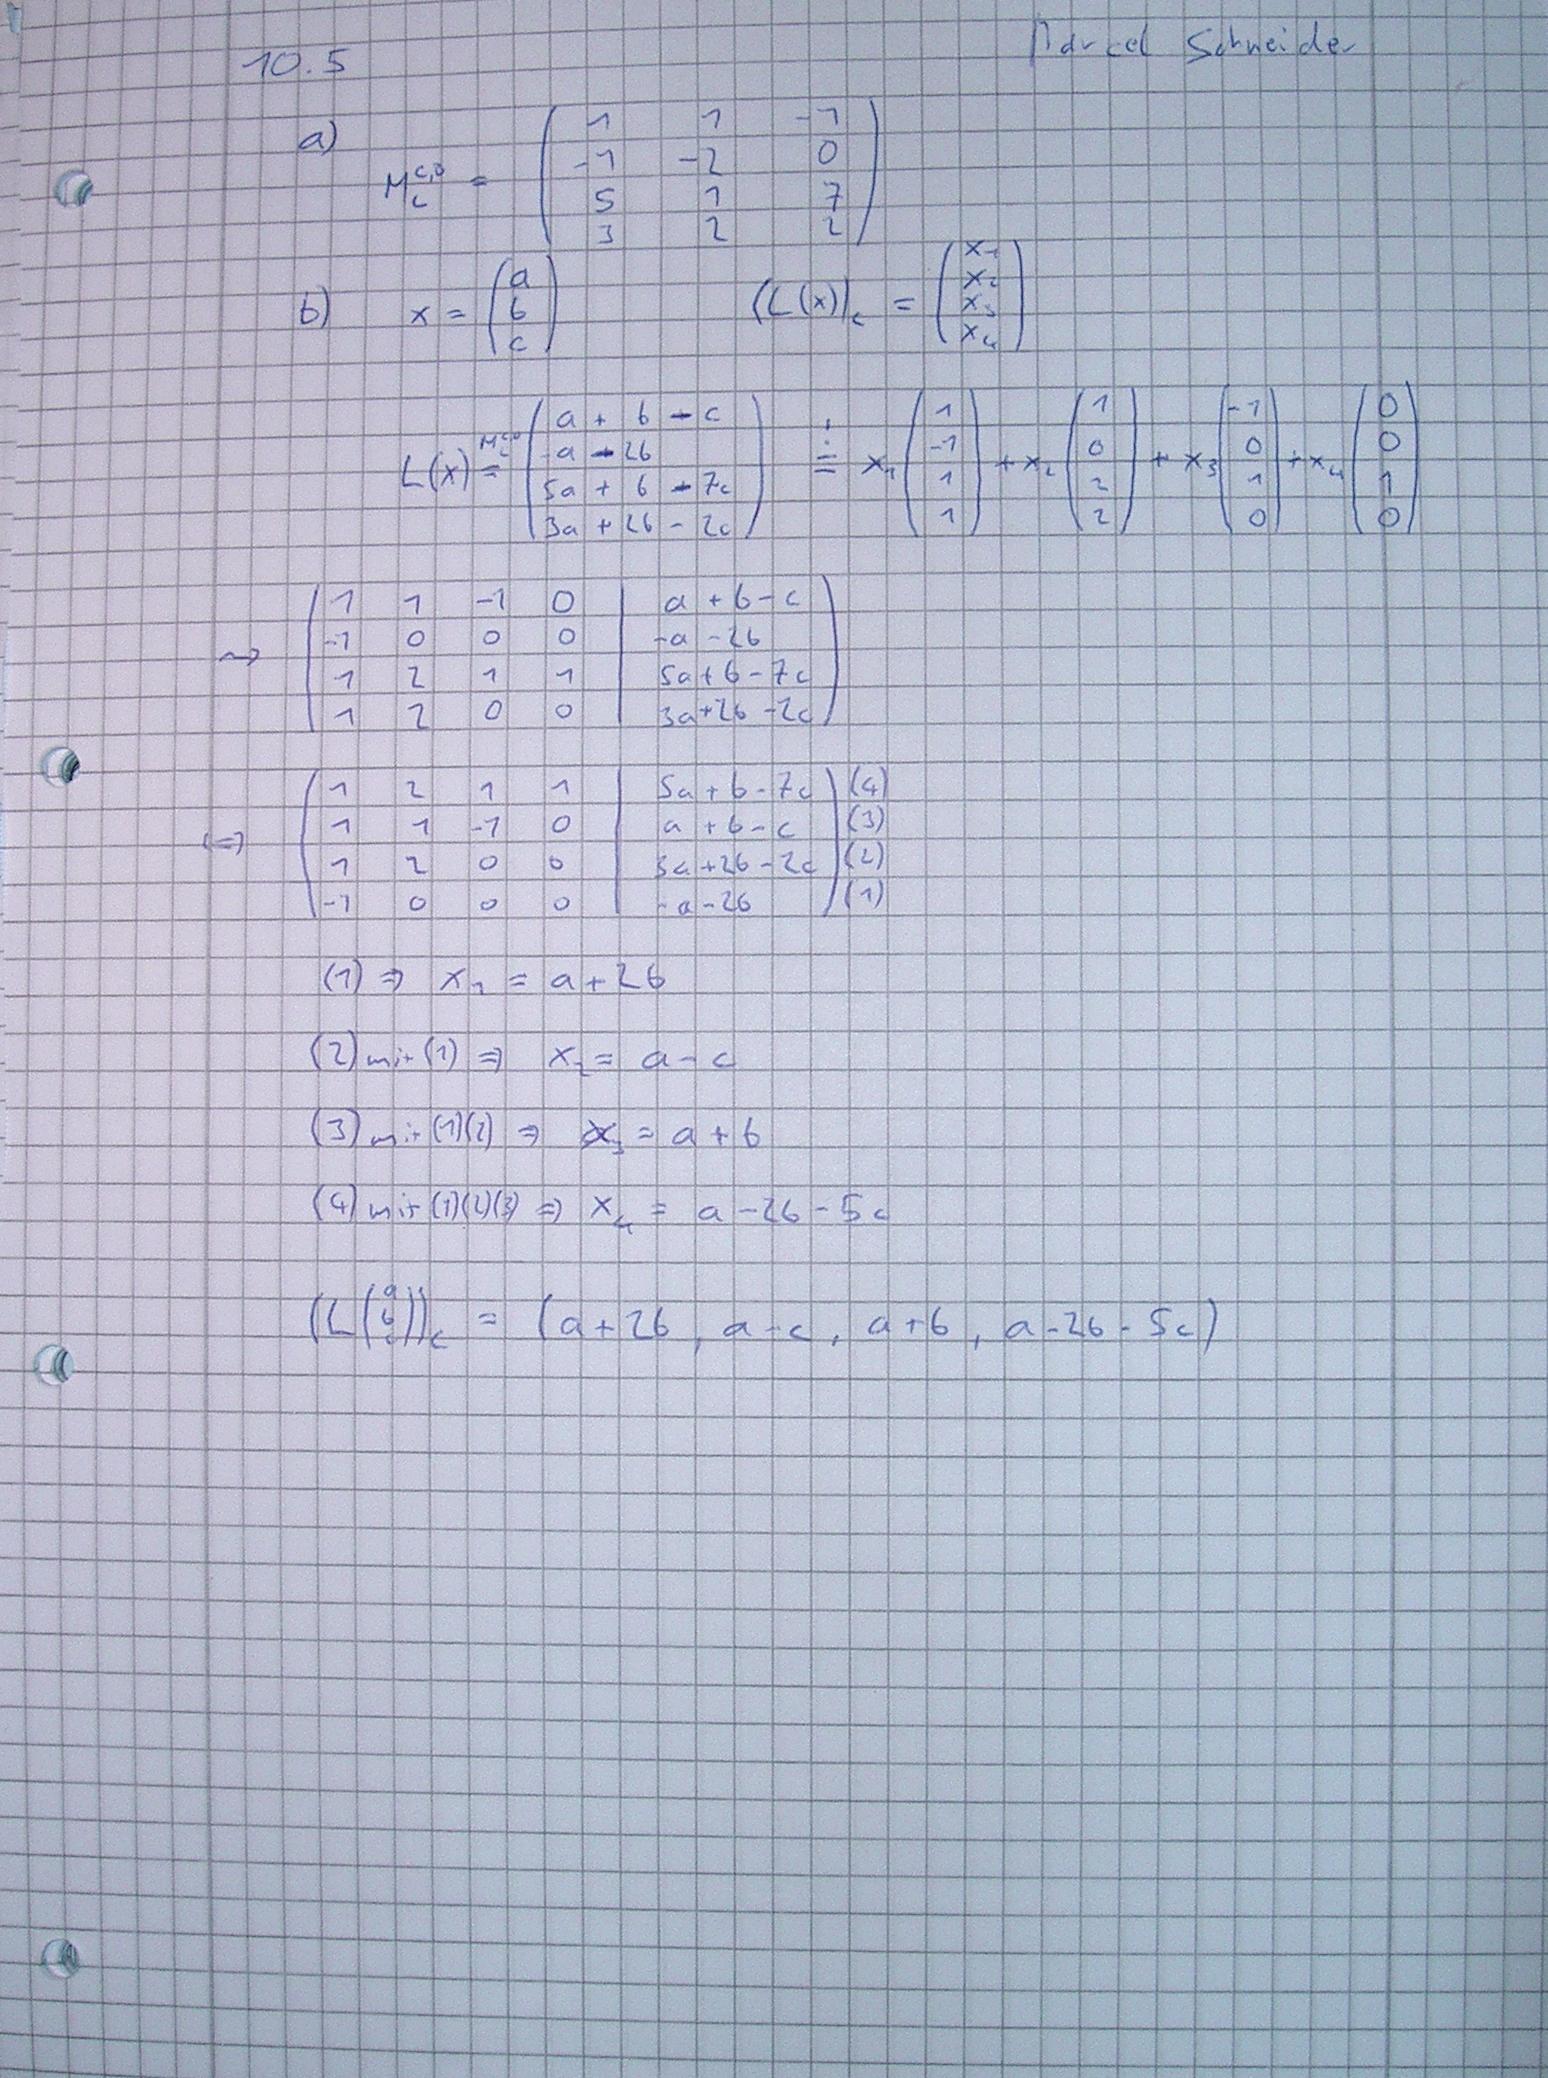 10.5 Marcel Schneider
a) M_L^{C,B} = ( 1 1 -1 ; -1 -2 0 ; 5 1 7 ; 3 2 2 )
b) x = ( a ; b ; c ) (L(x))_c = ( x_1 ; x_2 ; x_3 ; x_4 )
L(x) = ( a + b - c ; -a - 2b ; 5a + b - 7c ; 3a + 2b - 2c ) =! x_1 ( 1 ; -1 ; 1 ; 1 ) + x_2 ( 1 ; 0 ; 2 ; 2 ) + x_3 ( -1 ; 0 ; 1 ; 0 ) + x_4 ( 0 ; 0 ; 1 ; 0 )
⇝ ( 1 1 -1 0 | a + b - c
-1 0 0 0 | -a - 2b
1 2 1 1 | 5a + b - 7c
1 2 0 0 | 3a + 2b - 2c )
(=) ( 1 2 1 1 | 5a + b - 7c ) (4)
1 1 -1 0 | a + b - c (3)
1 2 0 0 | 3a + 2b - 2c (2)
-1 0 0 0 | -a - 2b (1)
(1) ⇒ x_1 = a + 2b
(2) mit (1) ⇒ x_2 = a - c
(3) mit (1)(2) ⇒ x_3 = a + b
(4) mit (1)(2)(3) ⇒ x_4 = a - 2b - 5c
(L( a ; b ; c ))_c = (a + 2b, a - c, a + b, a - 2b - 5c)